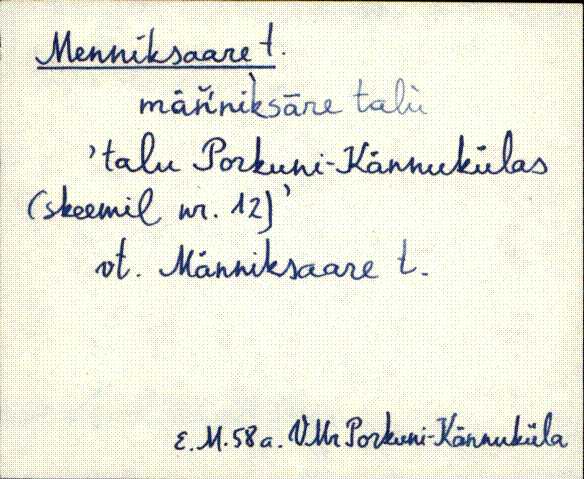 Menniksaare t.
män̆nìksāre talù
'talu Porkuni-Kännukülas
(skeemil nr. 12)'
vt. Männiksaare t.
E. M. 58 a. VMr Porkuni-Kännuküla